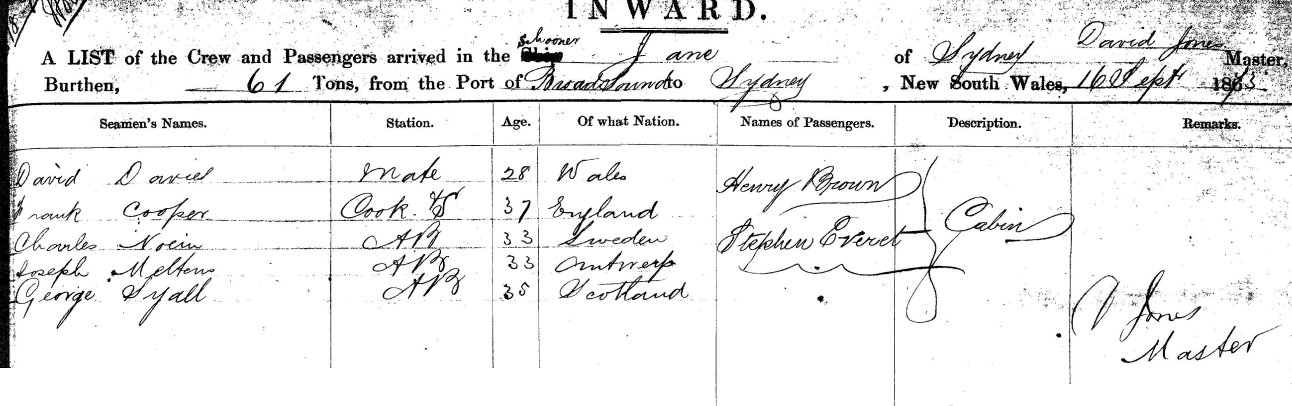 INWARD.
A LIST of the Crew and Passengers arrived in the Schooner Jane of Sydney David Jones Master,
Burthen, 61 Tons, from the Port of Broad Sound to Sydney, New South Wales, 16 Sept 18
Seamen's Names. Station. Age. Of what Nation. Names of Passengers. Description. Remarks.
David Mate 28 Wales Henry Brown
Frank Cooper Cook 37 England Cabin
Charles AB 33 Sweden Stephen Everet
Joseph AB 33 Antwerp
George AB 35 Scotland
D Jones
Master